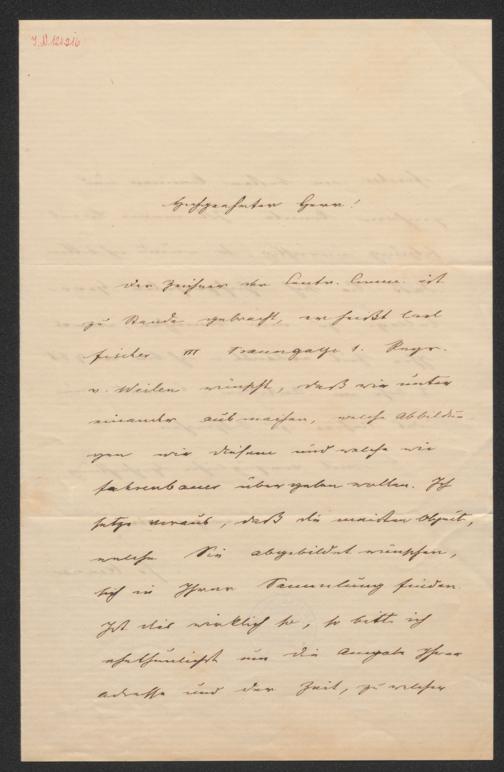 I.N. 121216
Hochgeehrter Herr!
Der Zeichner der Centr. Comm. ist
zu Stande gebracht, er heißt Carl
Fischer III Traungasse 1. Regr.
v. Weilen wünscht, daß wir unter
einander ausmachen, welche Abbildun-
gen wir diesem und welche wir
Fahrenbauer übergeben wollen. Ich
setze voraus, daß die meisten Objecte,
welche Sie abgebildet wünschen,
sich in Ihrer Sammlung finden.
Ist dies wirklich so, so bitte ich
ehethunlichst um die Angabe Ihrer
Adresse und der Zeit, zu welcher